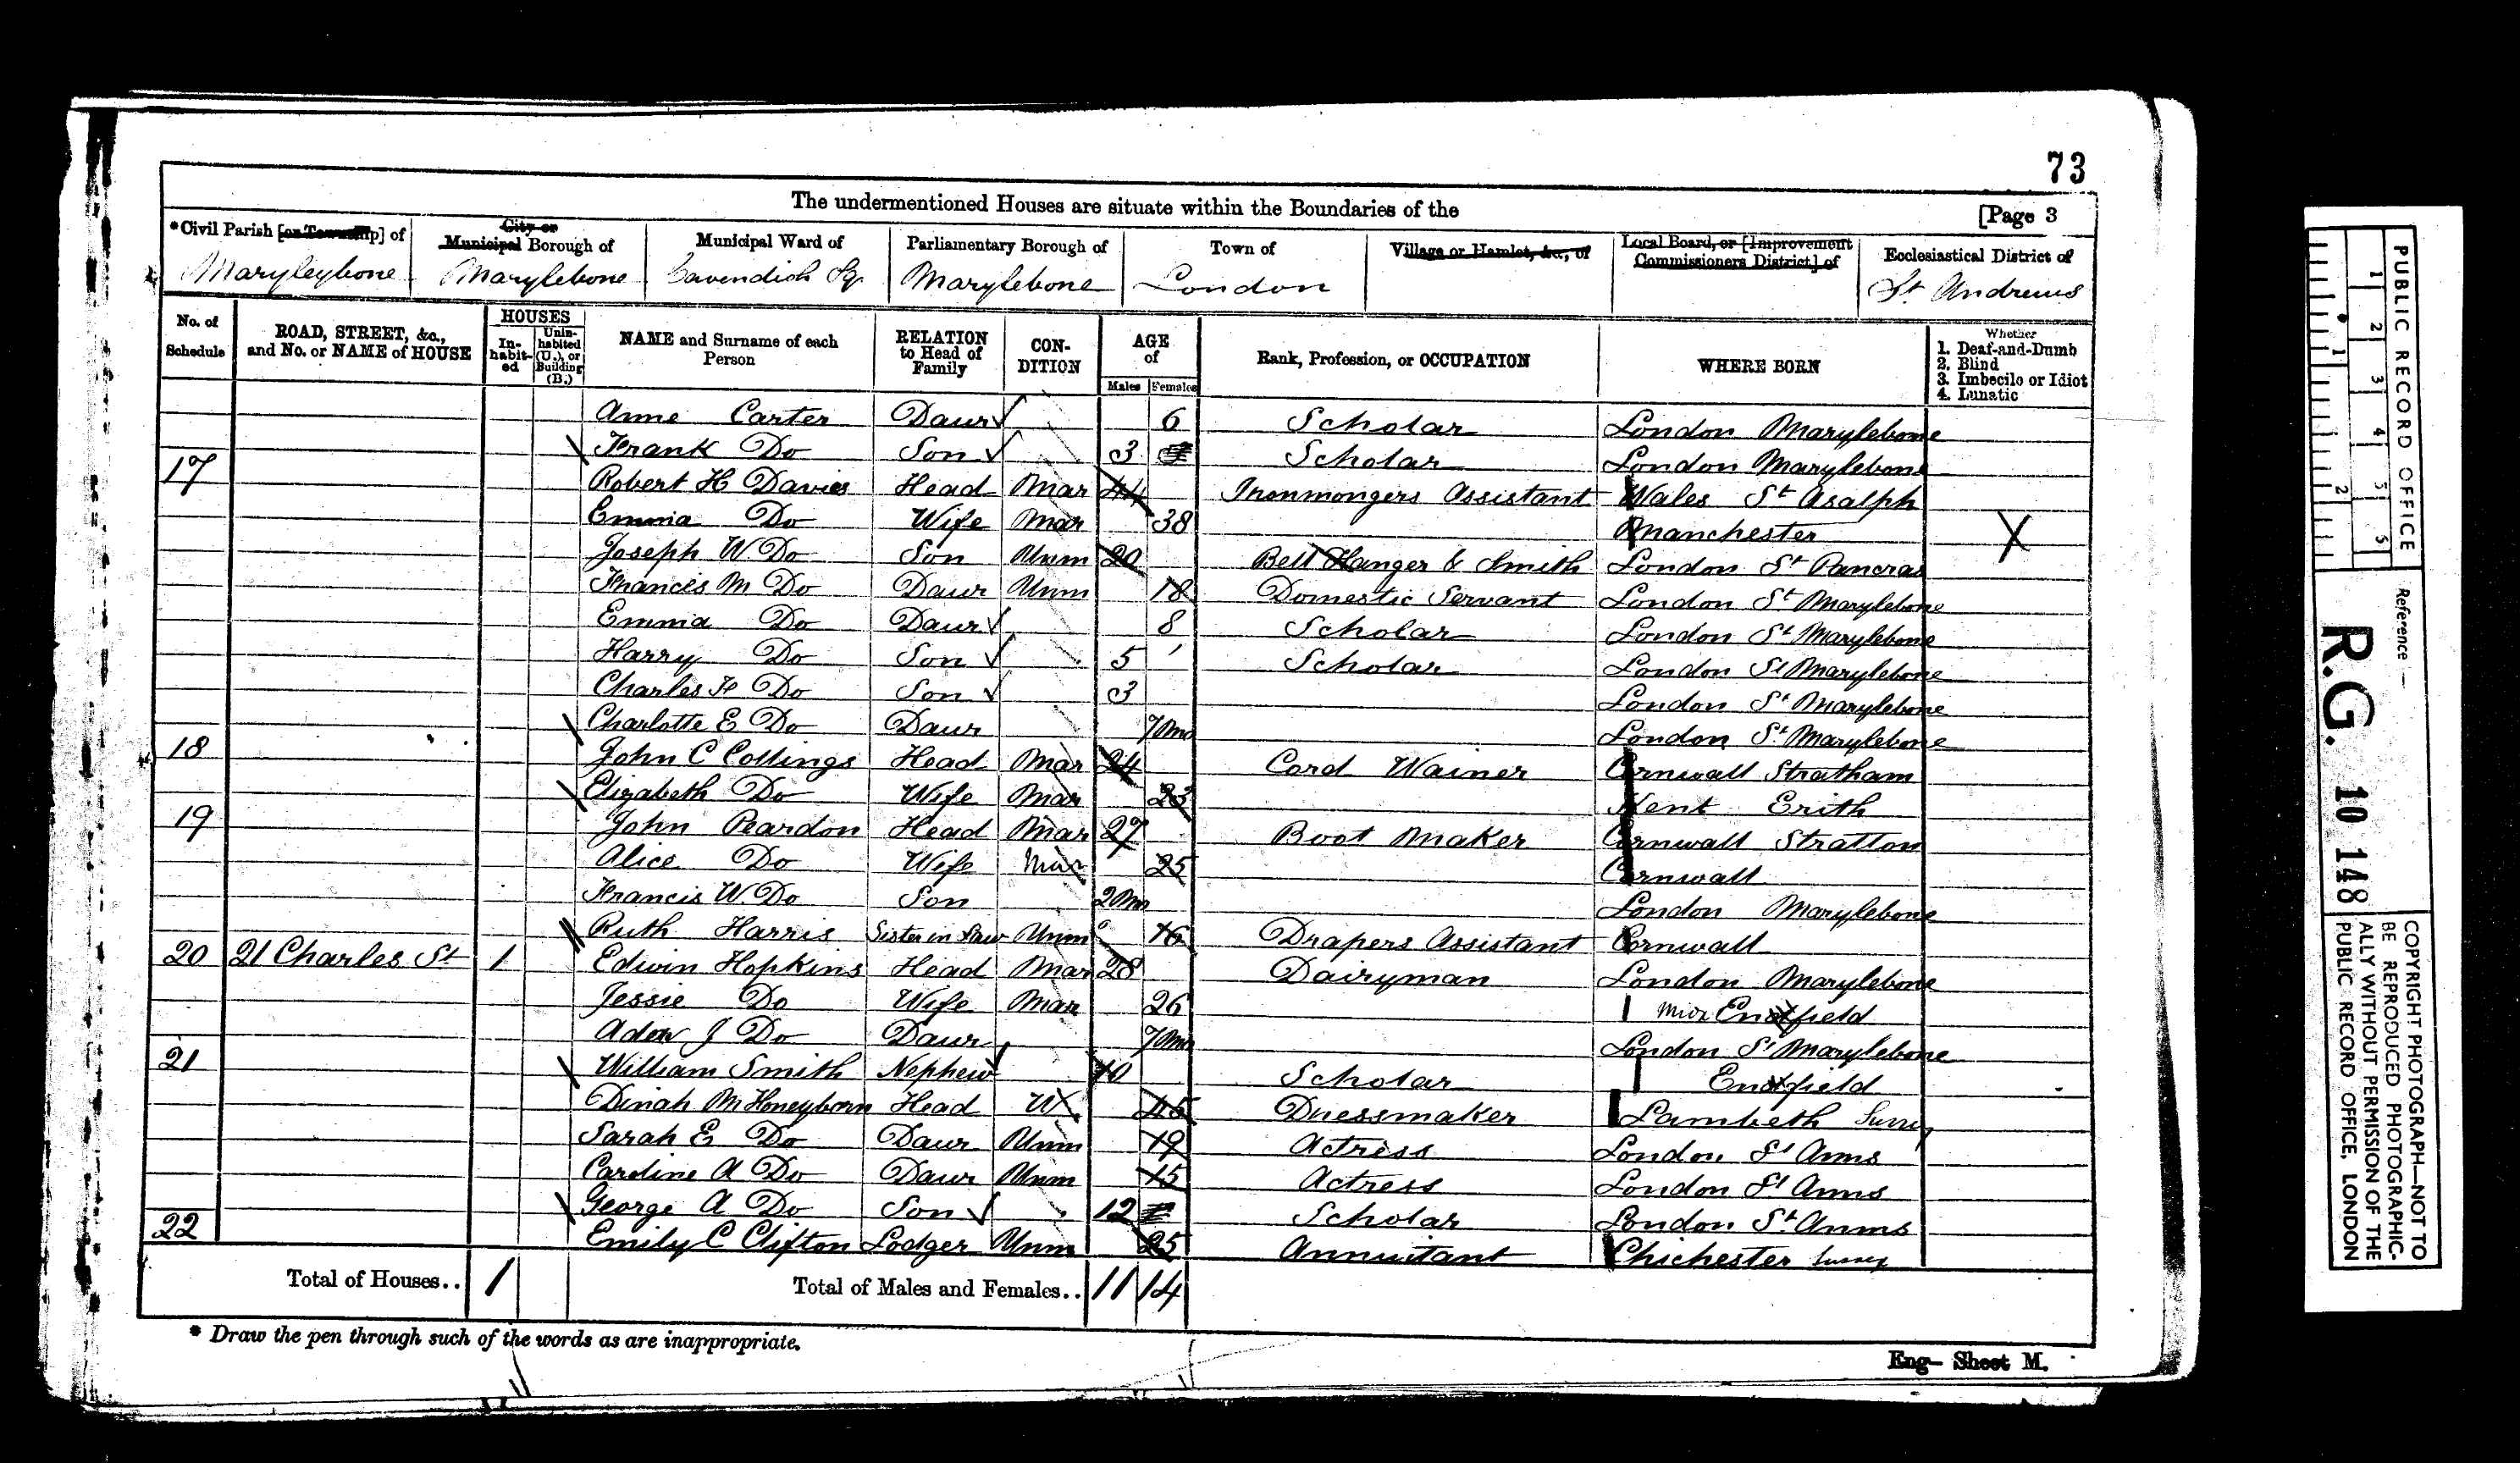 73
The undermentioned Houses are situate within the Boundaries of the [Page 3
*Civil Parish [or Township] of
Maryleybone
City or Municipal Borough of
Marylebone
Municipal Ward of
Cavendish Sq
Parliamentary Borough of
Marylebone
Town of
London
Village or Hamlet, &c., of
Local Board, or [Improvement Commissioners District] of
Ecclesiastical District of
St Andrews
No. of Schedule
ROAD, STREET, &c., and No. or NAME of HOUSE
HOUSES
In-habit-ed
Unin-habited (U.), or Building (B.)
NAME and Surname of each Person
RELATION to Head of Family
CON-DITION
AGE of
Males Females
Rank, Profession, or OCCUPATION
WHERE BORN
Whether
1. Deaf-and-Dumb
2. Blind
3. Imbecile or Idiot
4. Lunatic
Anne Carter Daur 6 Scholar London Marylebone
Frank Do Son 3 Scholar London Marylebone
17 Robert H Davies Head Mar 44 Ironmongers Assistant Wales St Asalph
Emma Do Wife Mar 38 Manchester
Joseph W Do Son Unm 20 Bell Hanger & Smith London St Pancras
Francis M Do Daur Unm 18 Domestic Servant London St Marylebone
Emma Do Daur 8 Scholar London St Marylebone
Harry Do Son 5 Scholar London St Marylebone
Charles H Do Son 3 London St Marylebone
Charlotte E Do Daur 7 Mo London St Marylebone
18 John C Collings Head Mar 24 Cord Wainer Cornwall Stratham
Elizabeth Do Wife Mar 23 Kent Erith
19 John Peardon Head Mar 27 Boot Maker Cornwall Stratton
Alice Do Wife Mar 25 Cornwall
Francis W Do Son 2 Mo London Marylebone
Ruth Harris Sister in Law Unm 16 Drapers Assistant Cornwall
20 21 Charles St 1 Edwin Hopkins Head Mar 28 Dairyman London Marylebone
Jessie Do Wife Mar 26 Midx Enfield
Ada J Do Daur 7 Mo London St Marylebone
21 William Smith Nephew 10 Scholar Enfield
Dinah M Honeyborn Head W 45 Dressmaker Lambeth Surrey
Sarah E Do Daur Unm 19 Actress London St Anns
Caroline A Do Daur Unm 15 Actress London St Anns
George A Do Son 12 Scholar London St Anns
22 Emily C Clifton Lodger Unm 25 Annuitant Chichester Sussex
Total of Houses.. 1 Total of Males and Females.. 11 14
* Draw the pen through such of the words as are inappropriate.
Eng- Sheet M.
PUBLIC RECORD OFFICE
1 2 3 4 5 5
1 2
Reference:—
R.G. 10 148
COPYRIGHT PHOTOGRAPH—NOT TO
BE REPRODUCED PHOTOGRAPHIC-
ALLY WITHOUT PERMISSION OF THE
PUBLIC RECORD OFFICE, LONDON